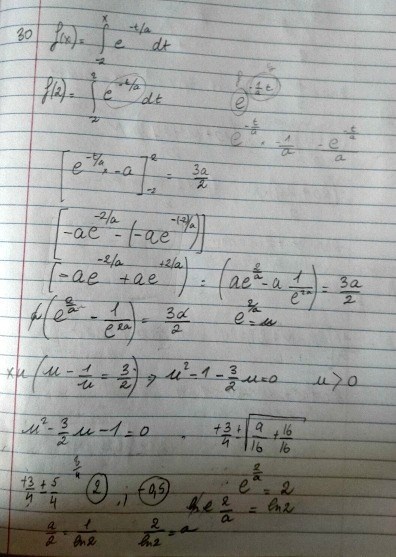 30 f(x) = ∫_{-2}^{x} e^{-t/a} dt
f(2) = ∫_{-2}^{2} e^{-t/a} dt
e^{-t/a} · -1/a  -e^{-t/a}/a
[e^{-t/a} · -a]_{-2}^{2} = 3a/2
[-ae^{-2/a} - (-ae^{-(-2)/a})]
(-ae^{-2/a} + ae^{+2/a}) = (ae^{2/a} - a 1/e^{2/a}) = 3a/2
a(e^{2/a} - 1/e^{2/a}) = 3a/2  e^{2/a} = u
xu (u - 1/u = 3/2) ⇒ u² - 1 - 3/2 u = 0  u > 0
u² - 3/2 u - 1 = 0  +3/4 ± √(9/16 + 16/16)
+3/4 ± 5/4  2 ; -0,5  e^{2/a} = 2
ln e 2/a = ln2
a/2 = 1/ln2  2/ln2 = a